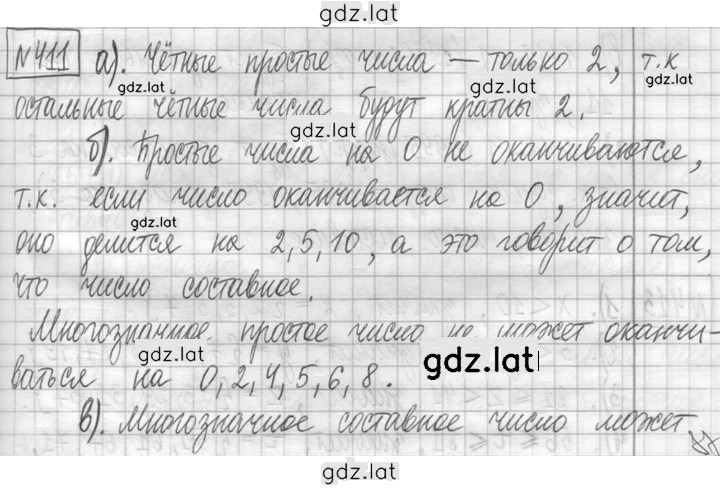 gdz.lat
№411 а). Чётные простые числа — только 2, т.к
gdz.lat gdz.lat
остальные чётные числа будут кратны 2.
gdz.lat
б). Простые числа на 0 не оканчиваются,
т.к. если число оканчивается на 0, значит,
gdz.lat
оно делится на 2,5,10, а это говорит о том,
что число составное.
Многозначное простое число не может оканчи-
gdz.lat gdz.lat
ваться на 0,2,4,5,6,8.
в). Многозначное составное число может
gdz.lat